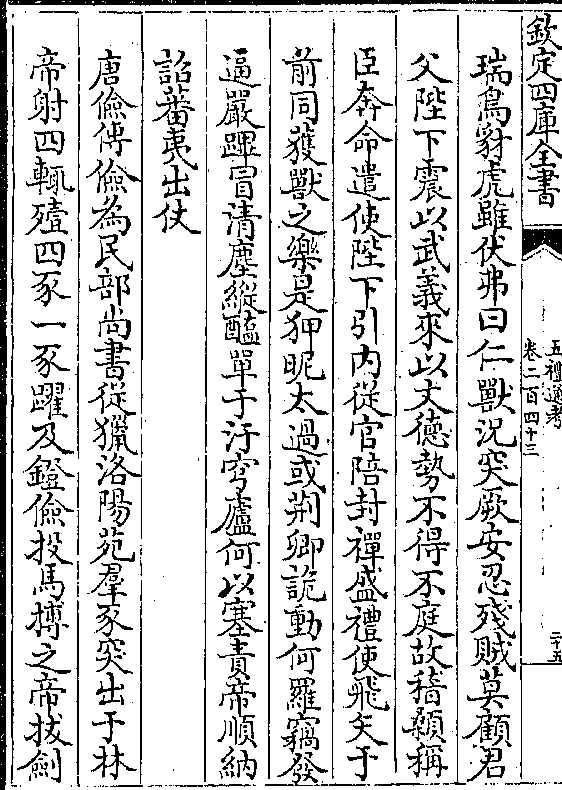 欽定四庫全書
五禮通考
卷二百四十三
二十五
瑞鳥豺虎雖伏弗曰仁獸況突厥安忍殘賊莫顧君
父陛下震以武義來以文德勢不得不庭故稽顙稱
臣奔命遣使陛下引内從官陪封禪盛禮使飛矢于
前同獲獸之樂是狎昵太過或荆卿詭動何羅竊發
逼嚴蹕冒清塵縱醢單于汙穹廬何以塞責帝順納
詔蕃夷出仗
唐儉傳儉為民部尚書從獵洛陽苑羣豕突出于林
帝射四輒殪四豕一豕躍及鐙儉投馬搏之帝拔劍